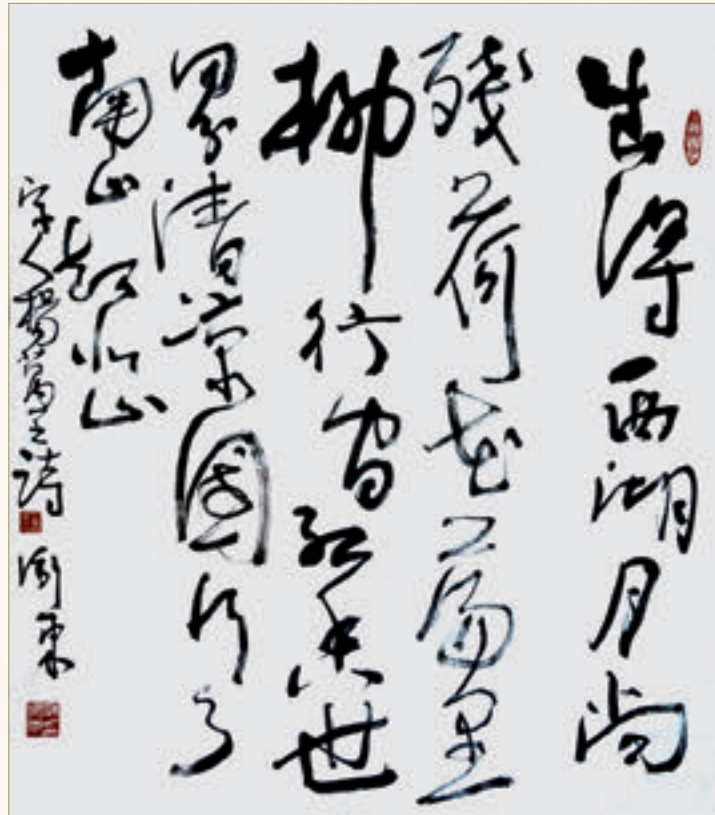 出得西湖月尚
残荷花荡里
柳行间红香世
界清凉国行了
南山却北山
宋人楊萬里诗